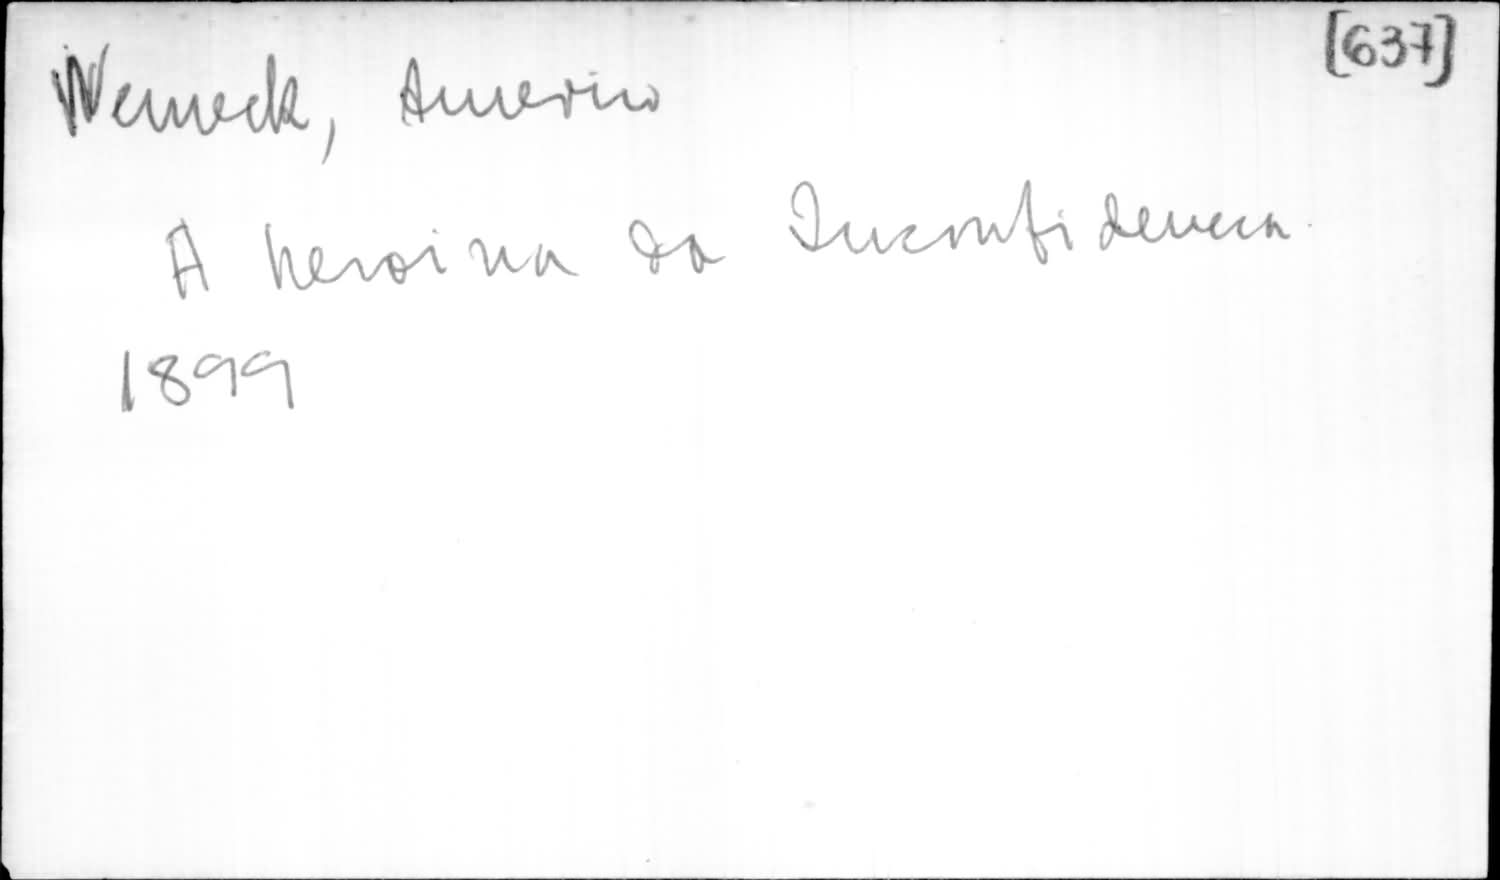 [637]
Werneck, Americo
A heroina da Inconfidencia
1899